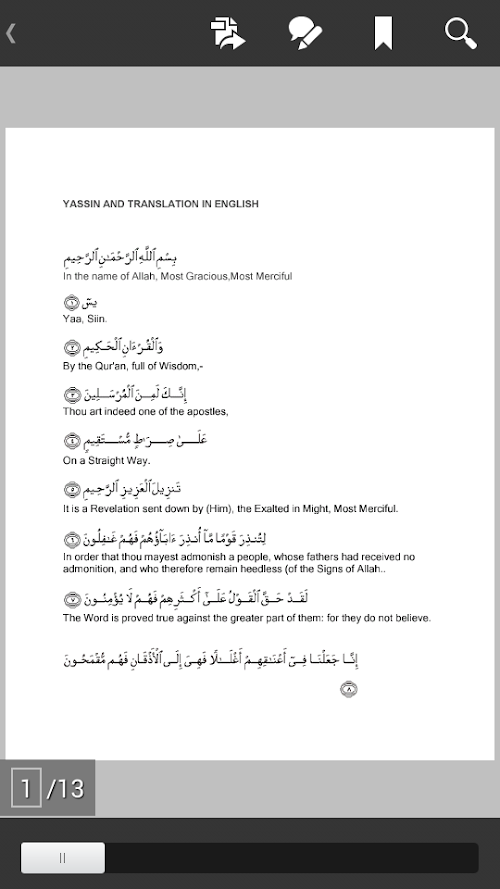 YASSIN AND TRANSLATION IN ENGLISH
بِسْمِ ٱللَّهِ ٱلرَّحْمَـٰنِ ٱلرَّحِيمِ
In the name of Allah, Most Gracious,Most Merciful
يسٓ ١
Yaa, Siin.
وَٱلْقُرْءَانِ ٱلْحَكِيمِ ٢
By the Qur'an, full of Wisdom,-
إِنَّكَ لَمِنَ ٱلْمُرْسَلِينَ ٣
Thou art indeed one of the apostles,
عَلَىٰ صِرَٰطٍ مُّسْتَقِيمٍ ٤
On a Straight Way.
تَنزِيلَ ٱلْعَزِيزِ ٱلرَّحِيمِ ٥
It is a Revelation sent down by (Him), the Exalted in Might, Most Merciful.
لِتُنذِرَ قَوْمًا مَّآ أُنذِرَ ءَابَآؤُهُمْ فَهُمْ غَـٰفِلُونَ ٦
In order that thou mayest admonish a people, whose fathers had received no
admonition, and who therefore remain heedless (of the Signs of Allah..
لَقَدْ حَقَّ ٱلْقَوْلُ عَلَىٰٓ أَكْثَرِهِمْ فَهُمْ لَا يُؤْمِنُونَ ٧
The Word is proved true against the greater part of them: for they do not believe.
إِنَّا جَعَلْنَا فِىٓ أَعْنَـٰقِهِمْ أَغْلَـٰلًا فَهِىَ إِلَى ٱلْأَذْقَانِ فَهُم مُّقْمَحُونَ
٨
1 /13